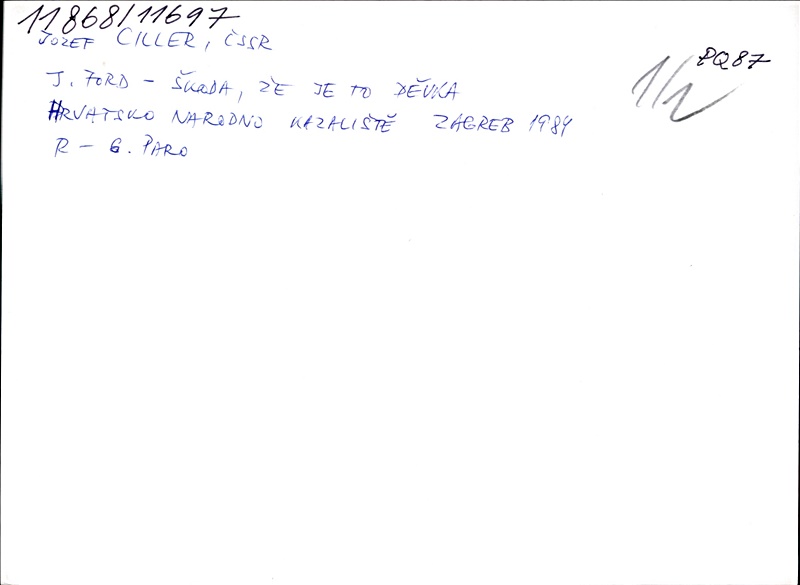 11868/11697
JOZEF CILLER, ČSSR
PQ87
1/2
J. FORD – ŠKODA, ŽE JE TO DĚVKA
HRVATSKO NARODNO KAZALIŠTĚ ZAGREB 1984
R – G. PARO